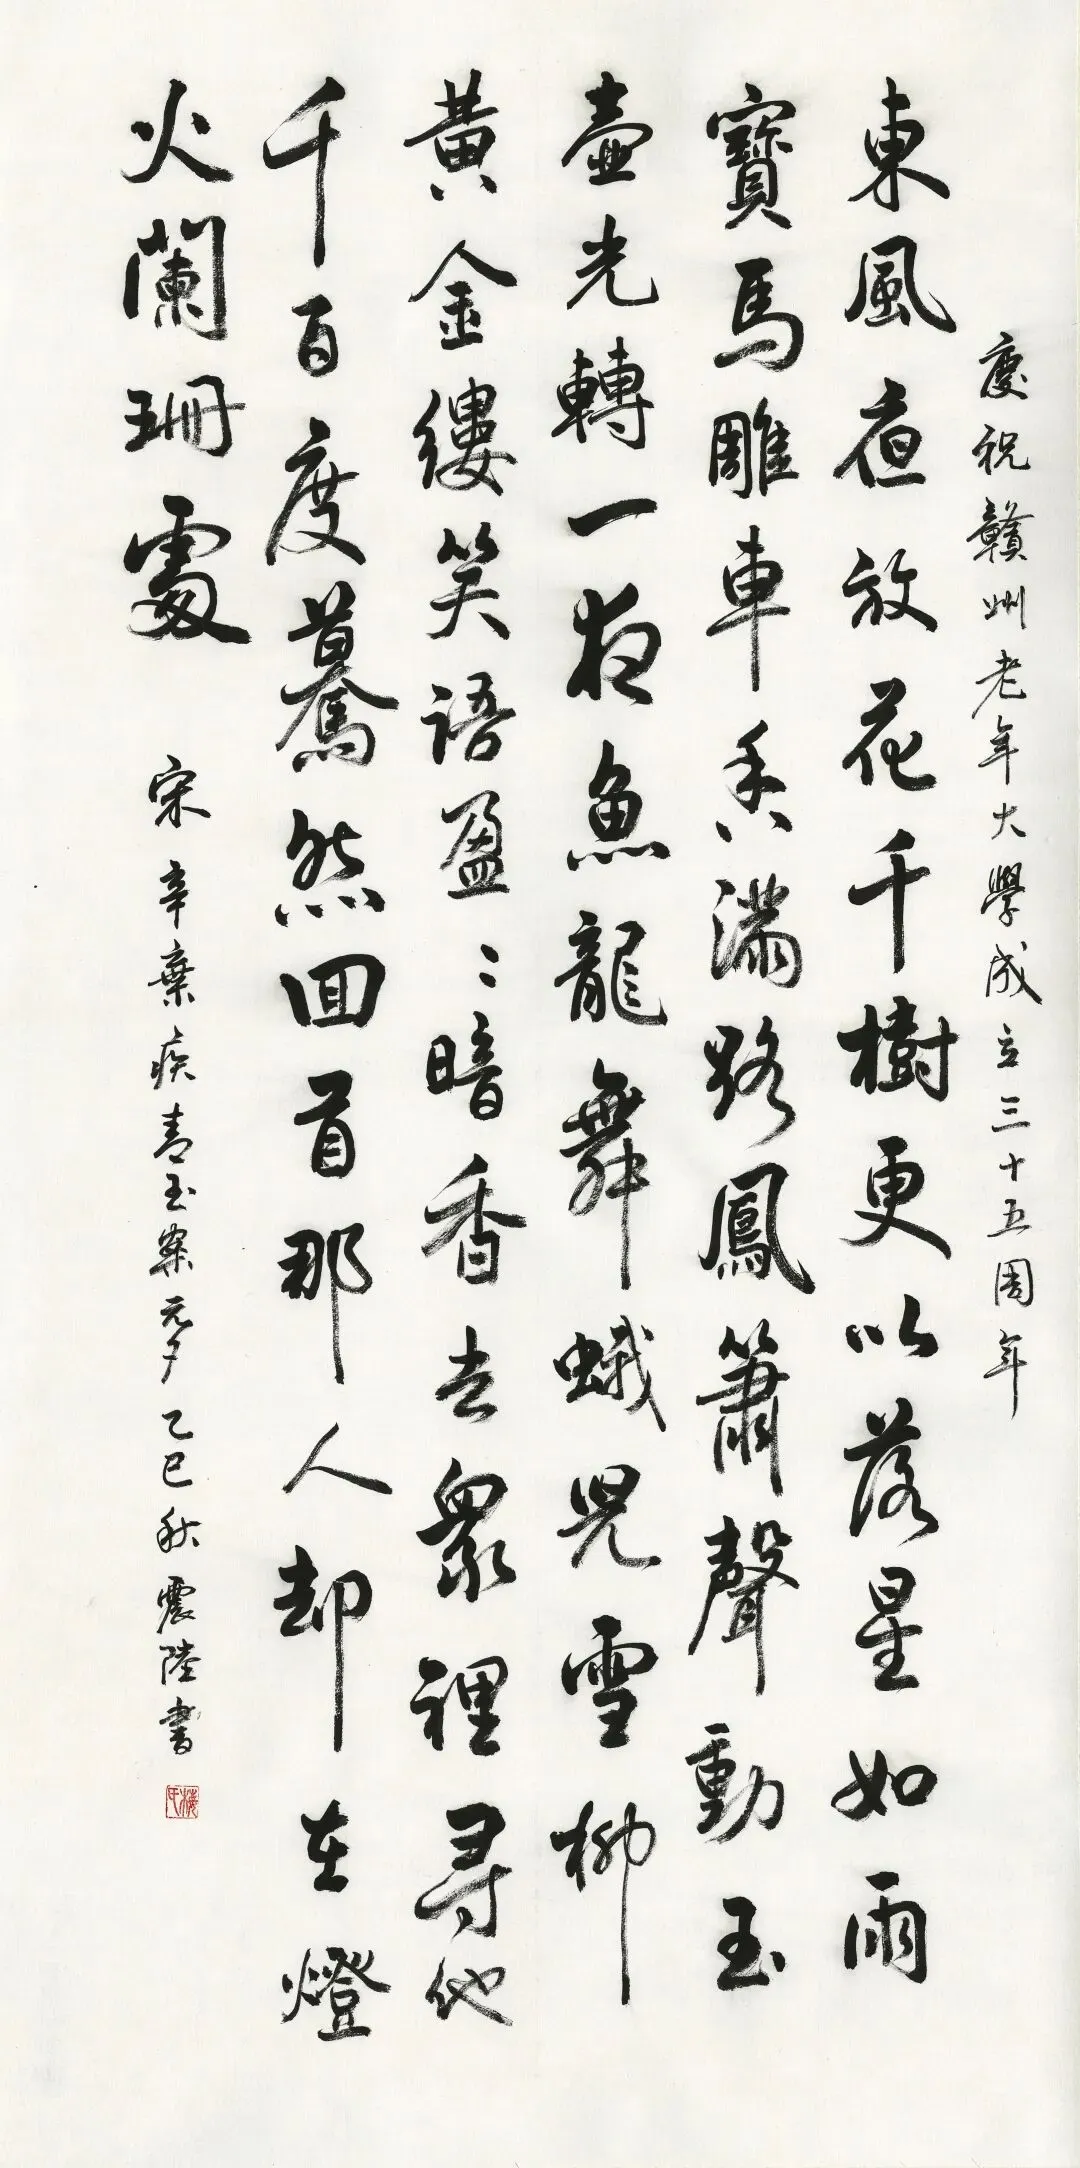 慶祝贛州老年大學成立三十五周年
東風夜放花千樹更以落星如雨
寶馬雕車香滿路鳳簫聲動玉
壺光轉一夜魚龍舞蛾兒雪柳
黃金縷笑語盈〻暗香去眾裡尋他
千百度驀然回首那人却在燈
火蘭珊處
宋辛棄疾青玉案元夕乙巳秋震陸書